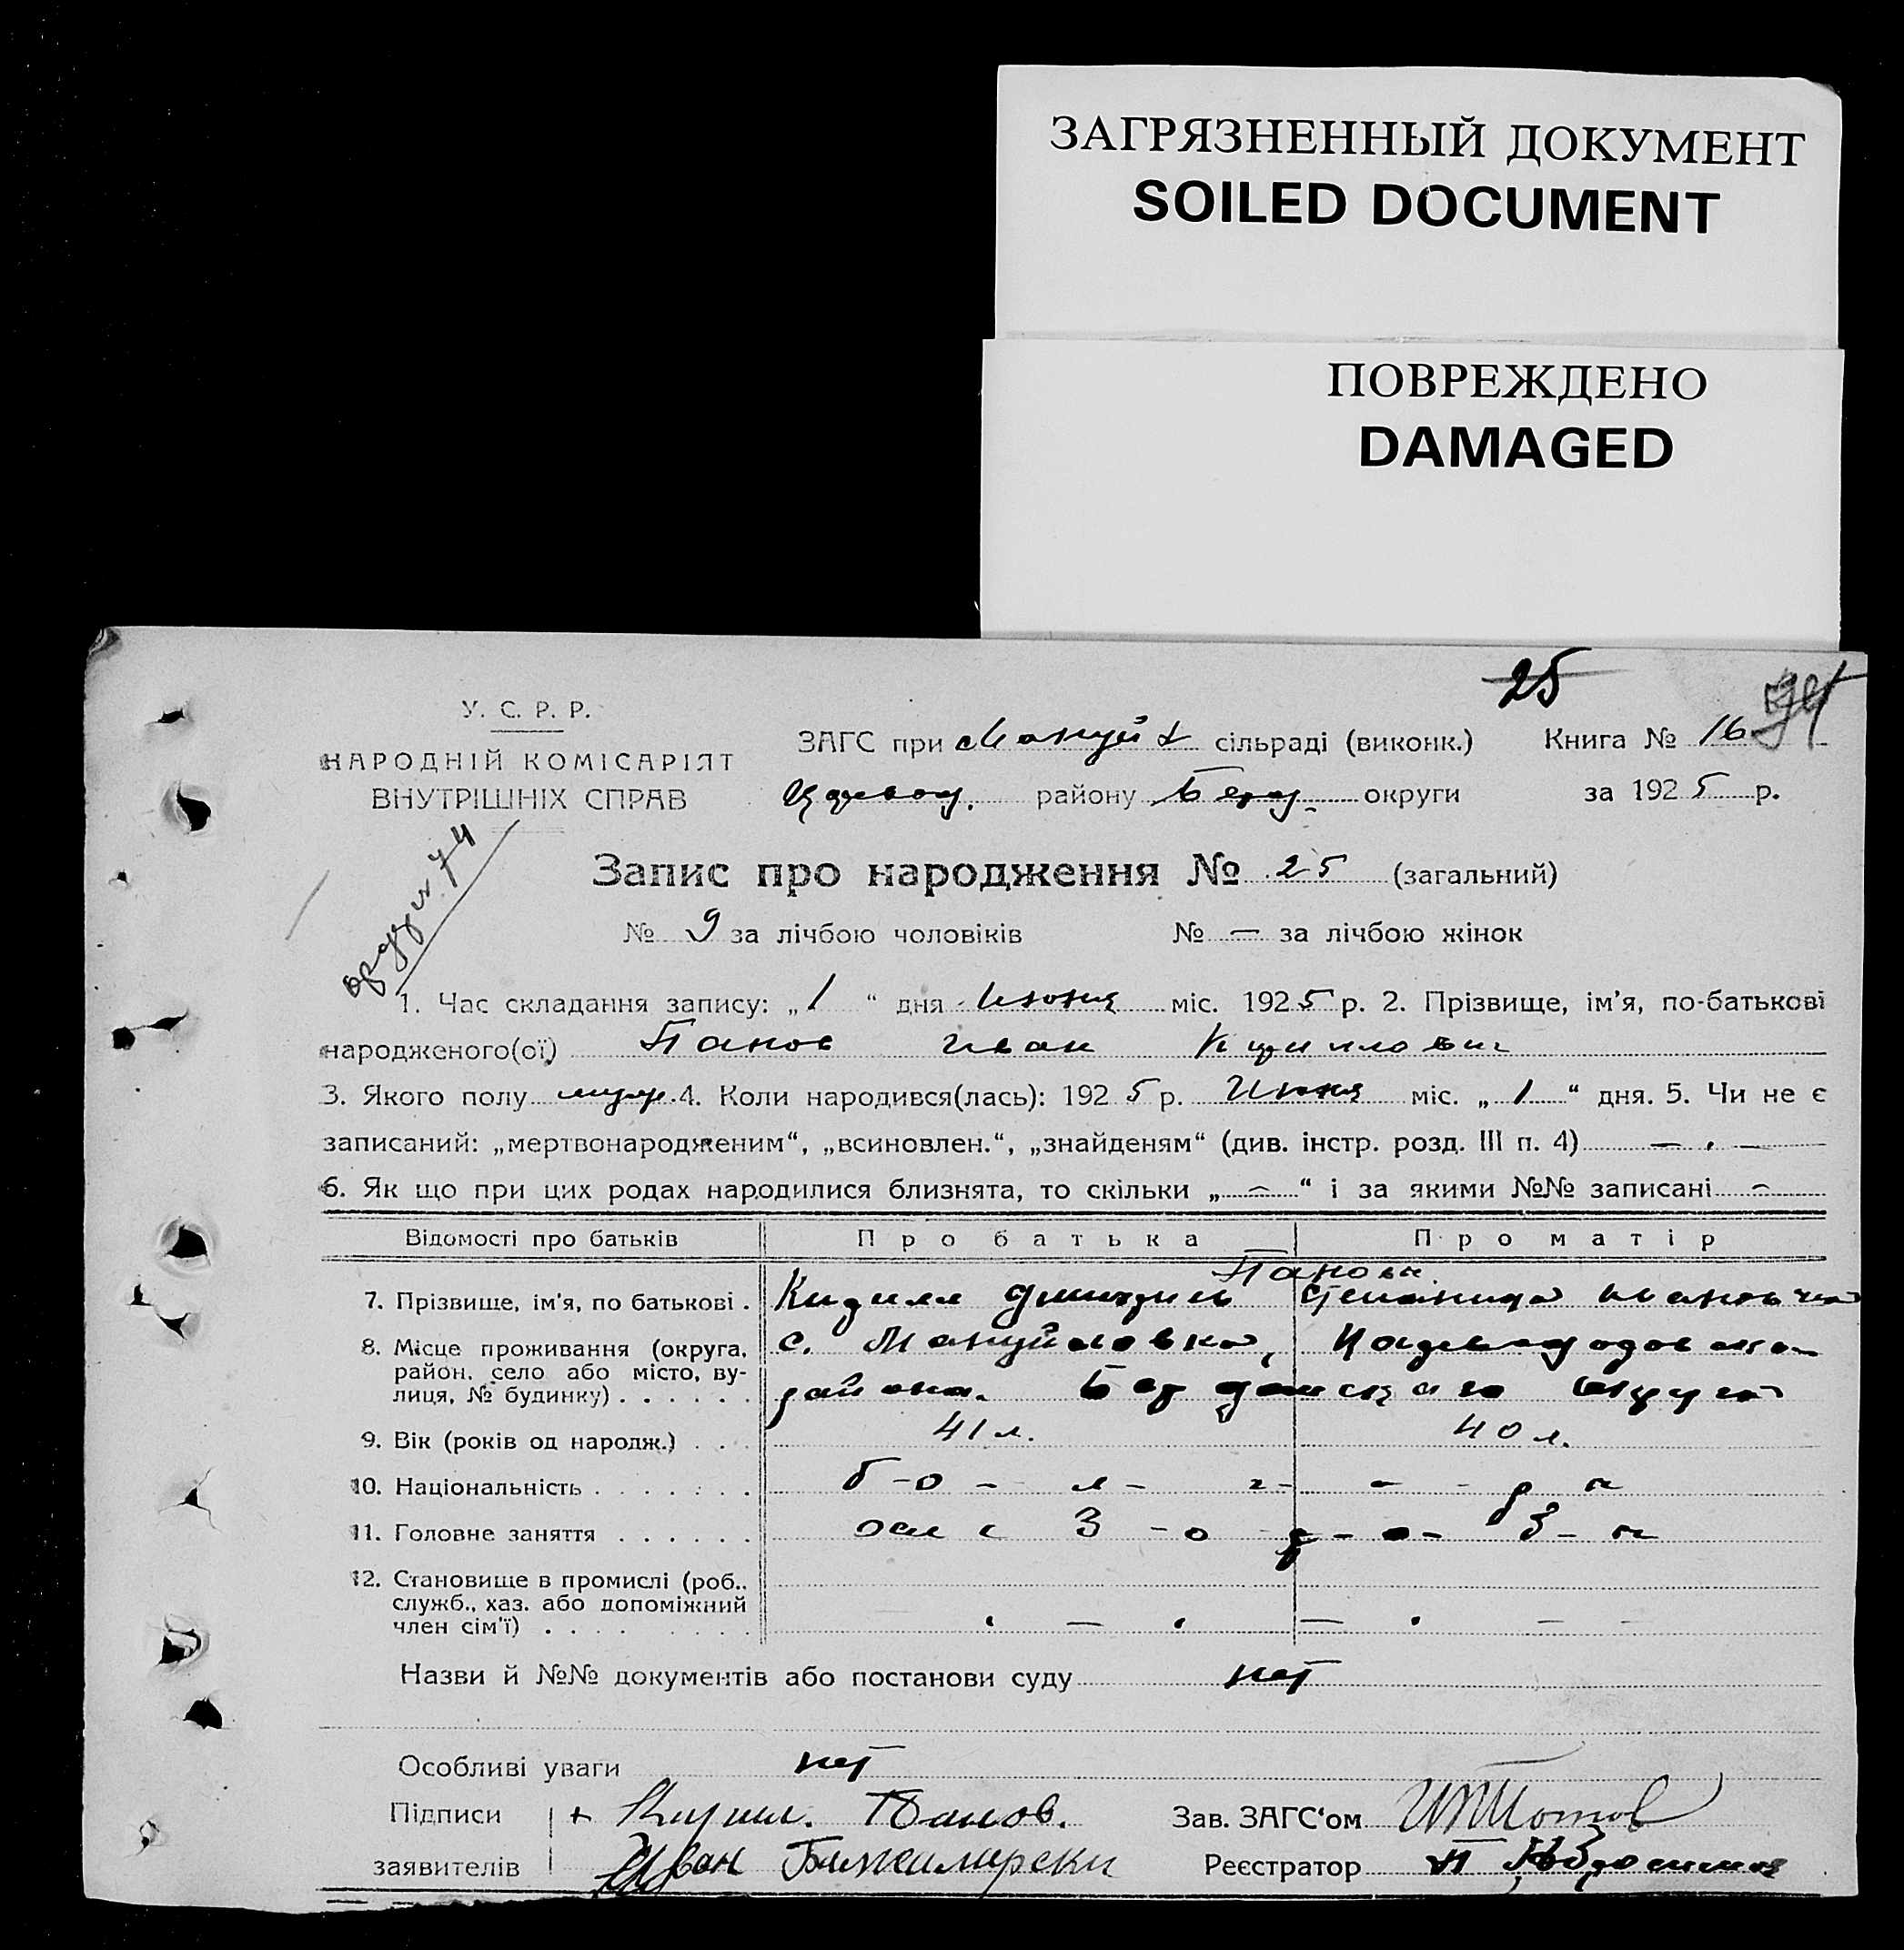 ЗАГРЯЗНЕННЫЙ ДОКУМЕНТ
SOILED DOCUMENT
ПОВРЕЖДЕНО
DAMAGED
25
У. С. Р. Р.
НАРОДНІЙ КОМІСАРІЯТ
ВНУТРІШНІХ СПРАВ
ЗАГС при Мануй сільраді (виконк.) Книга № 16
району Берд. округи за 1925 р.
Запис про народження № 25 (загальний)
№ 9 за лічбою чоловіків № — за лічбою жінок
1. Час складання запису: „1“ дня Июня міс. 1925 р. 2. Прізвище, ім'я, по-батькові
народженого(ої) Панов Иван Кириллович
3. Якого полу муж. 4. Коли народився(лась): 1925 р. Июня міс. „1“ дня. 5. Чи не є
записаний: „мертвонародженим“, „всиновлен.“, „знайденям“ (див. інстр. розд. III п. 4) — . —
6. Як що при цих родах народилися близнята, то скільки „—“ і за якими №№ записані —
Відомості про батьків Про батька Про матір
Пановы
7. Прізвище, ім'я, по батькові . Кирилл Дмитриев Степанида Ивановна
8. Місце проживання (округа, район, село або місто, вулиця, № будинку) . . . . . . с. Мануйловка,
района. Бердянского округа
9. Вік (років од народж.) . . . 41 л. 40 л.
10. Національність . . . . . . . б-о-л-г-а-р-
11. Головне заняття . . . . . .
12. Становище в промислі (роб., служб., хаз. або допоміжний член сім'ї) . . . . . . . . .
Назви й №№ документів або постанови суду нет
Особливі уваги нет
Підписи + Кирил. Панов. Зав. ЗАГС'ом
заявителів Иван Реєстратор